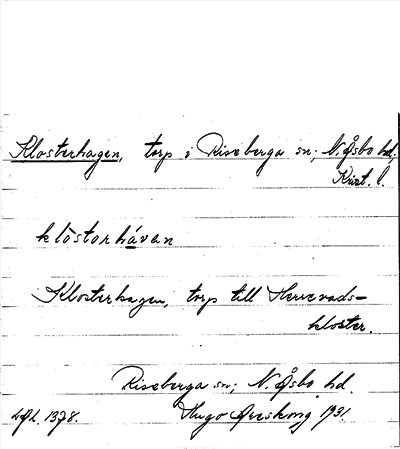 Klosterhagen, torp i Riseberga sn; N. Åsbo hd,
Krist. l.
klòstorhávan
Klosterhagen, torp till Herrevads-
kloster.
Riseberga sn; N. Åsbo hd.
1378. Hugo Areskoug 1931